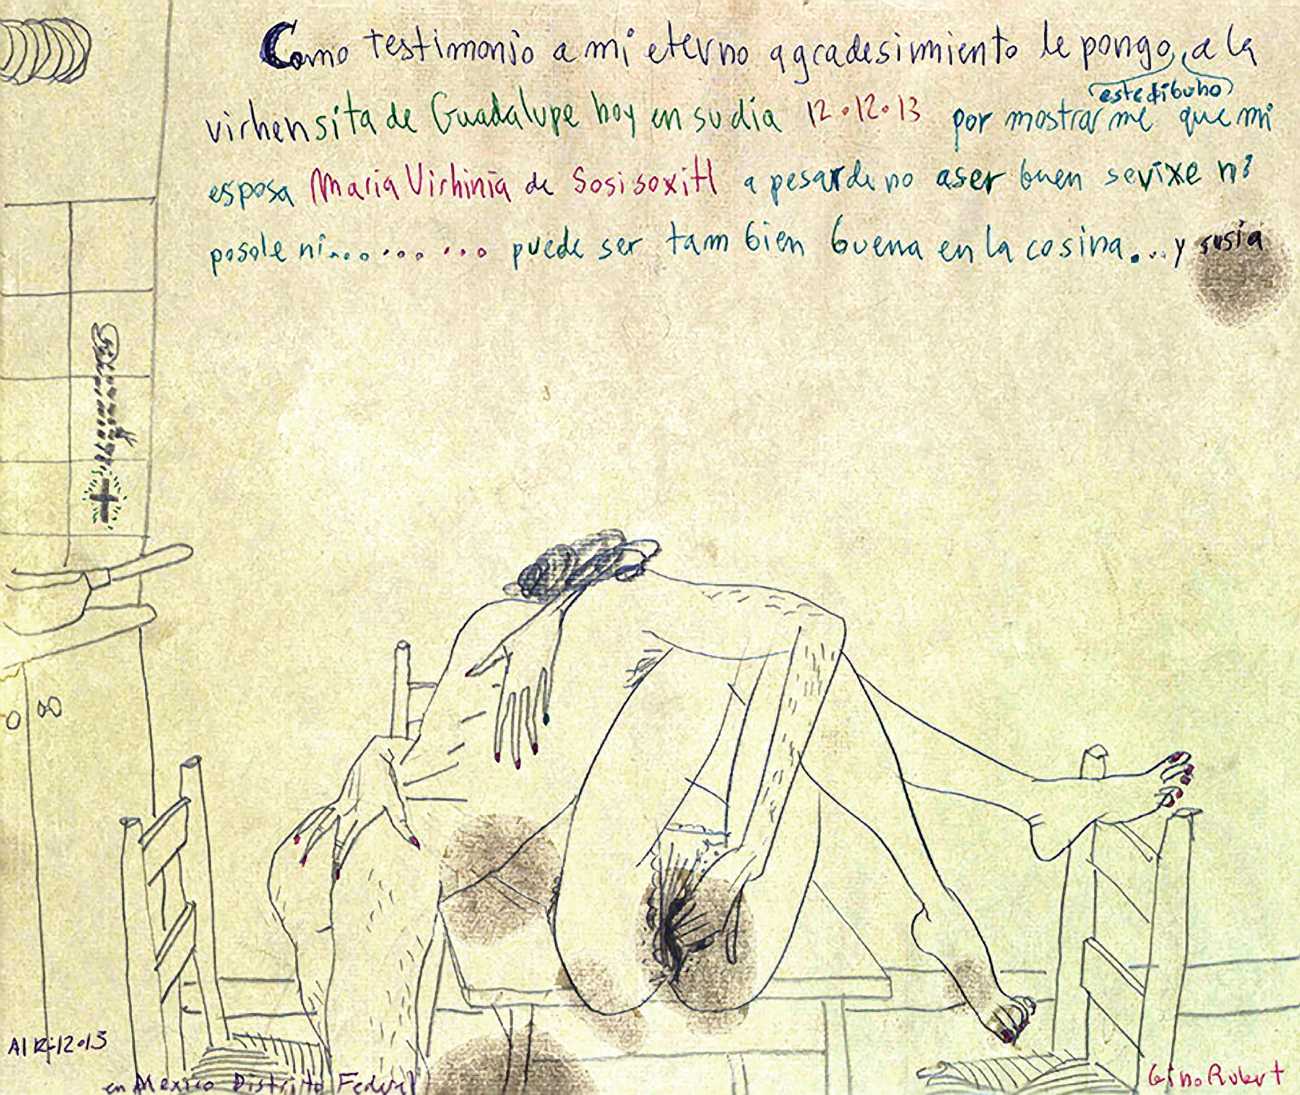 Como testimonio a mi eterno agradesimiento le pongo, a la
este dibuho
virhensita de Guadalupe hoy en su dia 12.12.13 por mostrarme que mi
esposa Maria Virhinia de Sosisoxitl a pesar de no aser buen sevixe ni
posole ni......... puede ser tambien buena en la cosina... y susia
Al 12-12-13
en Mexico Distrito Federal
Gino Rubert